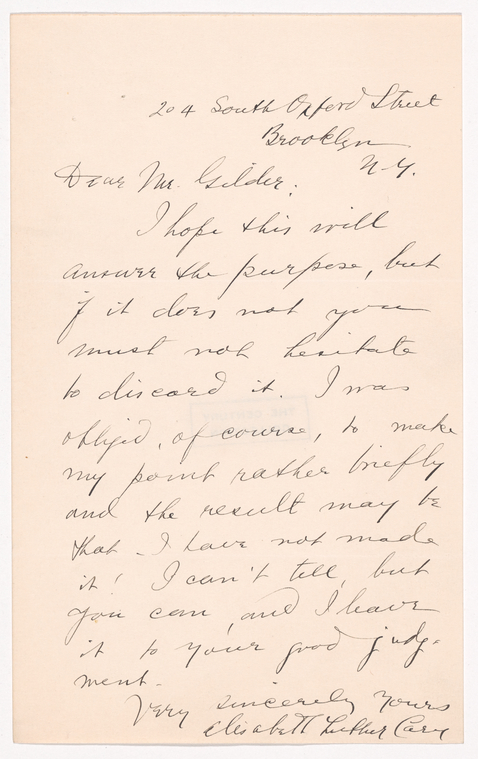 204 South Oxford Street
Brooklyn
N.Y.
Dear Mr. Gilder:
I hope this will
answer the purpose, but
if it does not you
must not hesitate
to discard it. I was
obliged, of course, to make
my point rather briefly
and the result may be
that I have not made
it! I can't tell, but
you can, and I leave
it to your good judg-
ment.
Very sincerely yours
Elisabeth Luther Cary